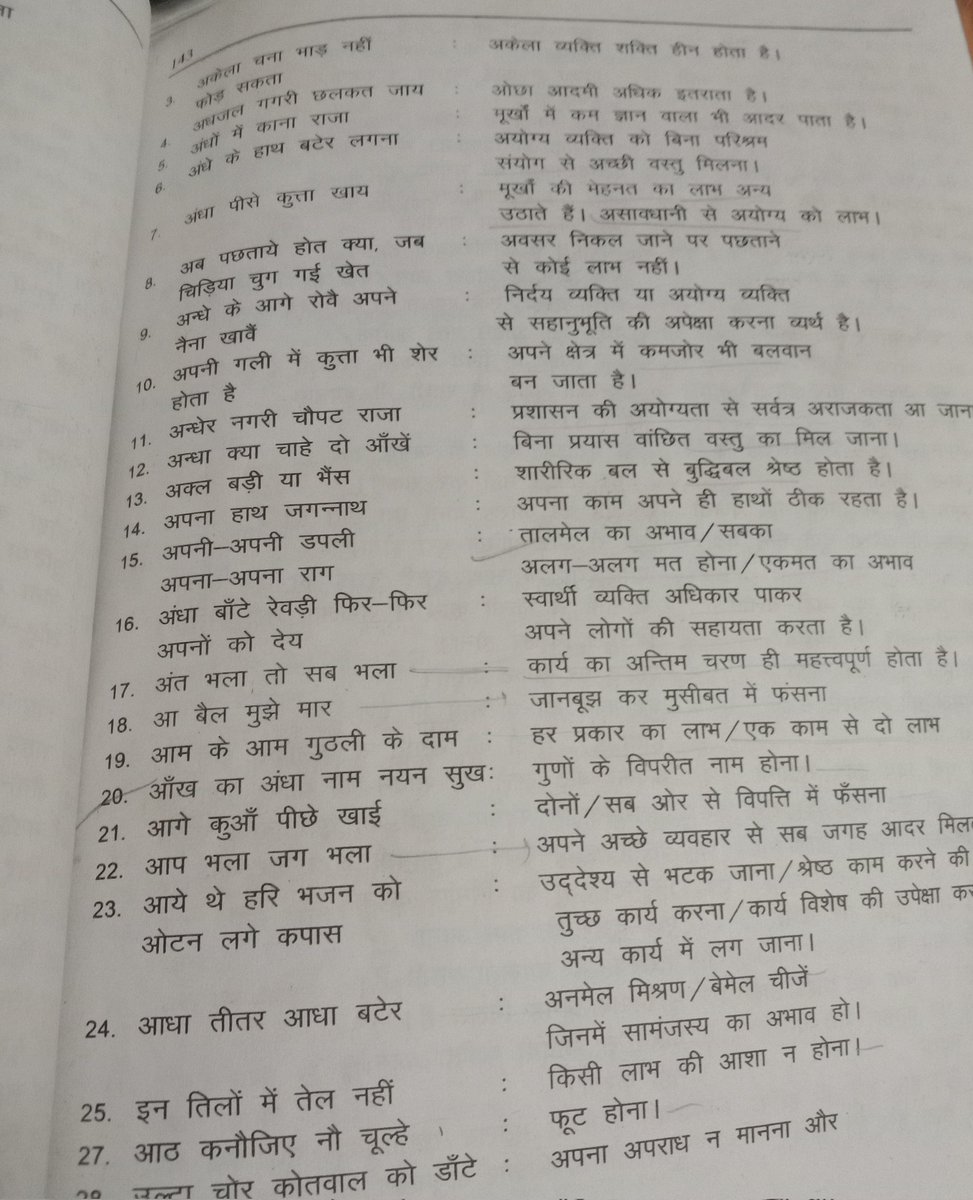 143
3. अकेला चना भाड़ नहीं : अकेला व्यक्ति शक्ति हीन होता है।
फोड़ सकता
4. अधजल गगरी छलकत जाय : ओछा आदमी अधिक इतराता है।
5. अंधों में काना राजा : मूर्खों में कम ज्ञान वाला भी आदर पाता है।
6. अंधे के हाथ बटेर लगना : अयोग्य व्यक्ति को बिना परिश्रम
संयोग से अच्छी वस्तु मिलना।
7. अंधा पीसे कुत्ता खाय : मूर्खों की मेहनत का लाभ अन्य
उठाते हैं। असावधानी से अयोग्य को लाभ।
8. अब पछताये होत क्या, जब : अवसर निकल जाने पर पछताने
चिड़िया चुग गई खेत से कोई लाभ नहीं।
9. अन्धे के आगे रोवै अपने : निर्दय व्यक्ति या अयोग्य व्यक्ति
नैना खावैं से सहानुभूति की अपेक्षा करना व्यर्थ है।
10. अपनी गली में कुत्ता भी शेर : अपने क्षेत्र में कमजोर भी बलवान
होता है बन जाता है।
11. अन्धेर नगरी चौपट राजा : प्रशासन की अयोग्यता से सर्वत्र अराजकता आ जान
12. अन्धा क्या चाहे दो आँखें : बिना प्रयास वांछित वस्तु का मिल जाना।
13. अक्ल बड़ी या भैंस : शारीरिक बल से बुद्धिबल श्रेष्ठ होता है।
14. अपना हाथ जगन्नाथ : अपना काम अपने ही हाथों ठीक रहता है।
15. अपनी–अपनी डपली : तालमेल का अभाव/सबका
अपना–अपना राग अलग–अलग मत होना/एकमत का अभाव
16. अंधा बाँटे रेवड़ी फिर–फिर : स्वार्थी व्यक्ति अधिकार पाकर
अपनों को देय अपने लोगों की सहायता करता है।
17. अंत भला तो सब भला : कार्य का अन्तिम चरण ही महत्त्वपूर्ण होता है।
18. आ बैल मुझे मार : जानबूझ कर मुसीबत में फंसना
19. आम के आम गुठली के दाम : हर प्रकार का लाभ/एक काम से दो लाभ
20. आँख का अंधा नाम नयन सुख: गुणों के विपरीत नाम होना।
21. आगे कुआँ पीछे खाई : दोनों/सब ओर से विपत्ति में फँसना
22. आप भला जग भला : अपने अच्छे व्यवहार से सब जगह आदर मिल
23. आये थे हरि भजन को : उद्देश्य से भटक जाना/श्रेष्ठ काम करने की
ओटन लगे कपास तुच्छ कार्य करना/कार्य विशेष की उपेक्षा कर
अन्य कार्य में लग जाना।
24. आधा तीतर आधा बटेर : अनमेल मिश्रण/बेमेल चीजें
जिनमें सामंजस्य का अभाव हो।
25. इन तिलों में तेल नहीं : किसी लाभ की आशा न होना।
27. आठ कनौजिए नौ चूल्हे : फूट होना।
28. उल्टा चोर कोतवाल को डाँटे : अपना अपराध न मानना और